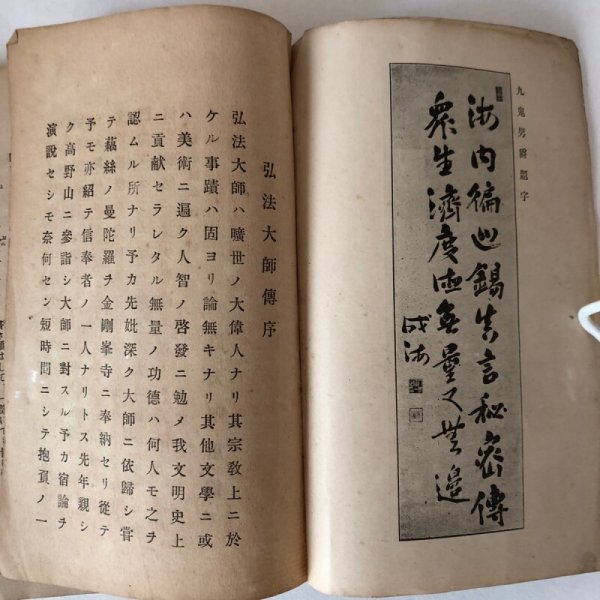 九鬼男爵題字
海内徧巡錫真言秘密傳
衆生濟度徳無量又無邊
成海
弘法大師傳序
弘法大師ハ曠世ノ大偉人ナリ其宗敎上ニ於
ケル事蹟ハ固ヨリ論無キナリ其他文學ニ或
ハ美術ニ遍ク人智ノ啓發ニ勉メ我文明史上
ニ貢献セラレタル無量ノ功德ハ何人モ之ヲ
認ムル所ナリ予カ先妣深ク大師ニ依歸シ嘗
テ藕絲ノ曼陀羅ヲ金剛峯寺ニ奉納セリ從テ
予モ亦紹テ信奉者ノ一人ナリトス先年親シ
ク高野山ニ參詣シ大師ニ對スル予カ宿論ヲ
演説セシモ奈何セン短時間ニシテ抱負ノ一